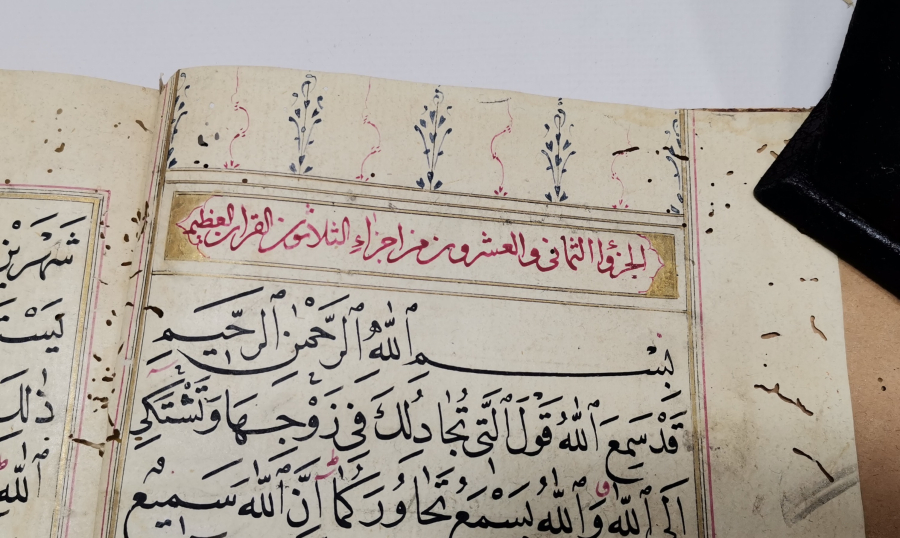 الجزؤا الثمانى والعشرون من اجزاء الثلاثون القران العظيم
بِسْمِ ٱللّٰهِ ٱلرَّحْمٰنِ ٱلرَّحِيمِ
قَدْ سَمِعَ ٱللّٰهُ قَوْلَ ٱلَّتِى تُجَادِلُكَ فِى زَوْجِهَا وَتَشْتَكِى
اِلَى ٱللّٰهِ وَٱللّٰهُ يَسْمَعُ تَحَاوُرَكُمَا اِنَّ ٱللّٰهَ سَمِيعٌ
شَهْرَيْنِ
ذٰلِكَ
ٱللّٰهِ